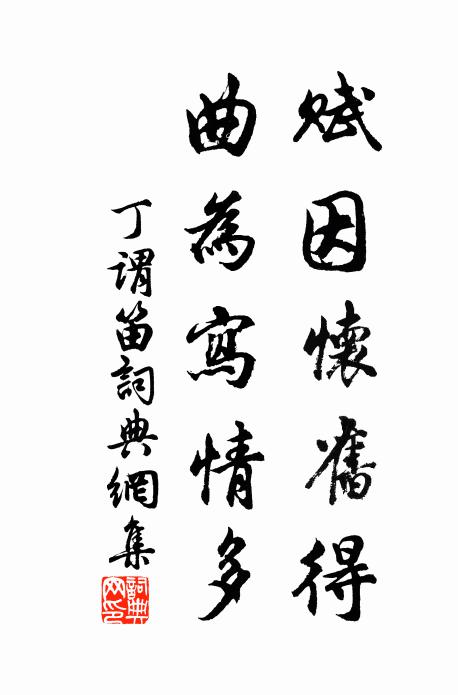 賦因懷舊得
曲為寫情多
丁謂笛詞典網集
詞典
网印